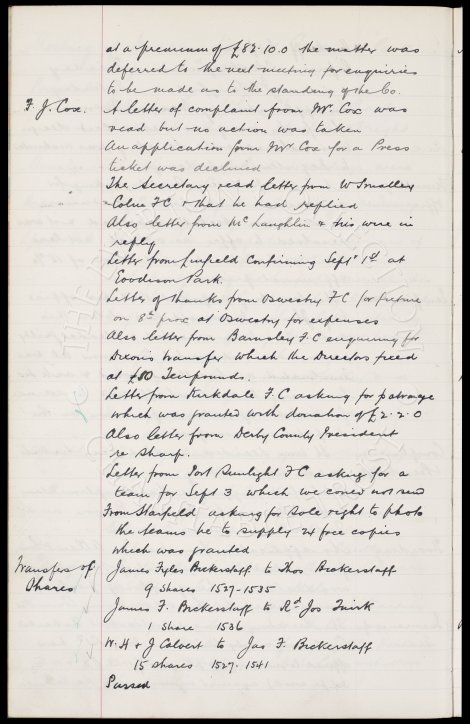 at a premium of £82.10.0 the matter was
deferred to the next meeting for enquiries
to be made as to the standing of the Co.
F. J. Cox.
A letter of complaint from Mr. Cox was
read but no action was taken
An application from Mr Cox for a Press
ticket was declined
The Secretary read letter from W Smalley
Colne FC & that he had replied
Also letter from McLaughlin & his wire in
reply
Letter from Linfield confirming Sept 1st at
Goodison Park.
Letter of thanks from Oswestry FC for fixture
on 8th prox at Oswestry for expenses
Also letter from Barnsley F.C enquiring for
Dixons transfer which the Directors fixed
at £10 Tenpounds.
Letter from Kirkdale F.C asking for patronage
which was granted with donation of £2.2.0
Also letter from Derby County President
re Sharp.
Letter from Port Sunlight FC asking for a
team for Sept 3 which we could not send
From asking for sole right to photo
the teams he to supply 24 free copies
which was granted
Transfers of
Shares
James Fyles Bickerstaff to Thos Bickerstaff
9 shares 1527-1535
James F. Bickerstaff to Rd Jos
1 share 1536
W. H & J Calvert to Jas F. Bickerstaff
15 shares 1527-1541
Passed